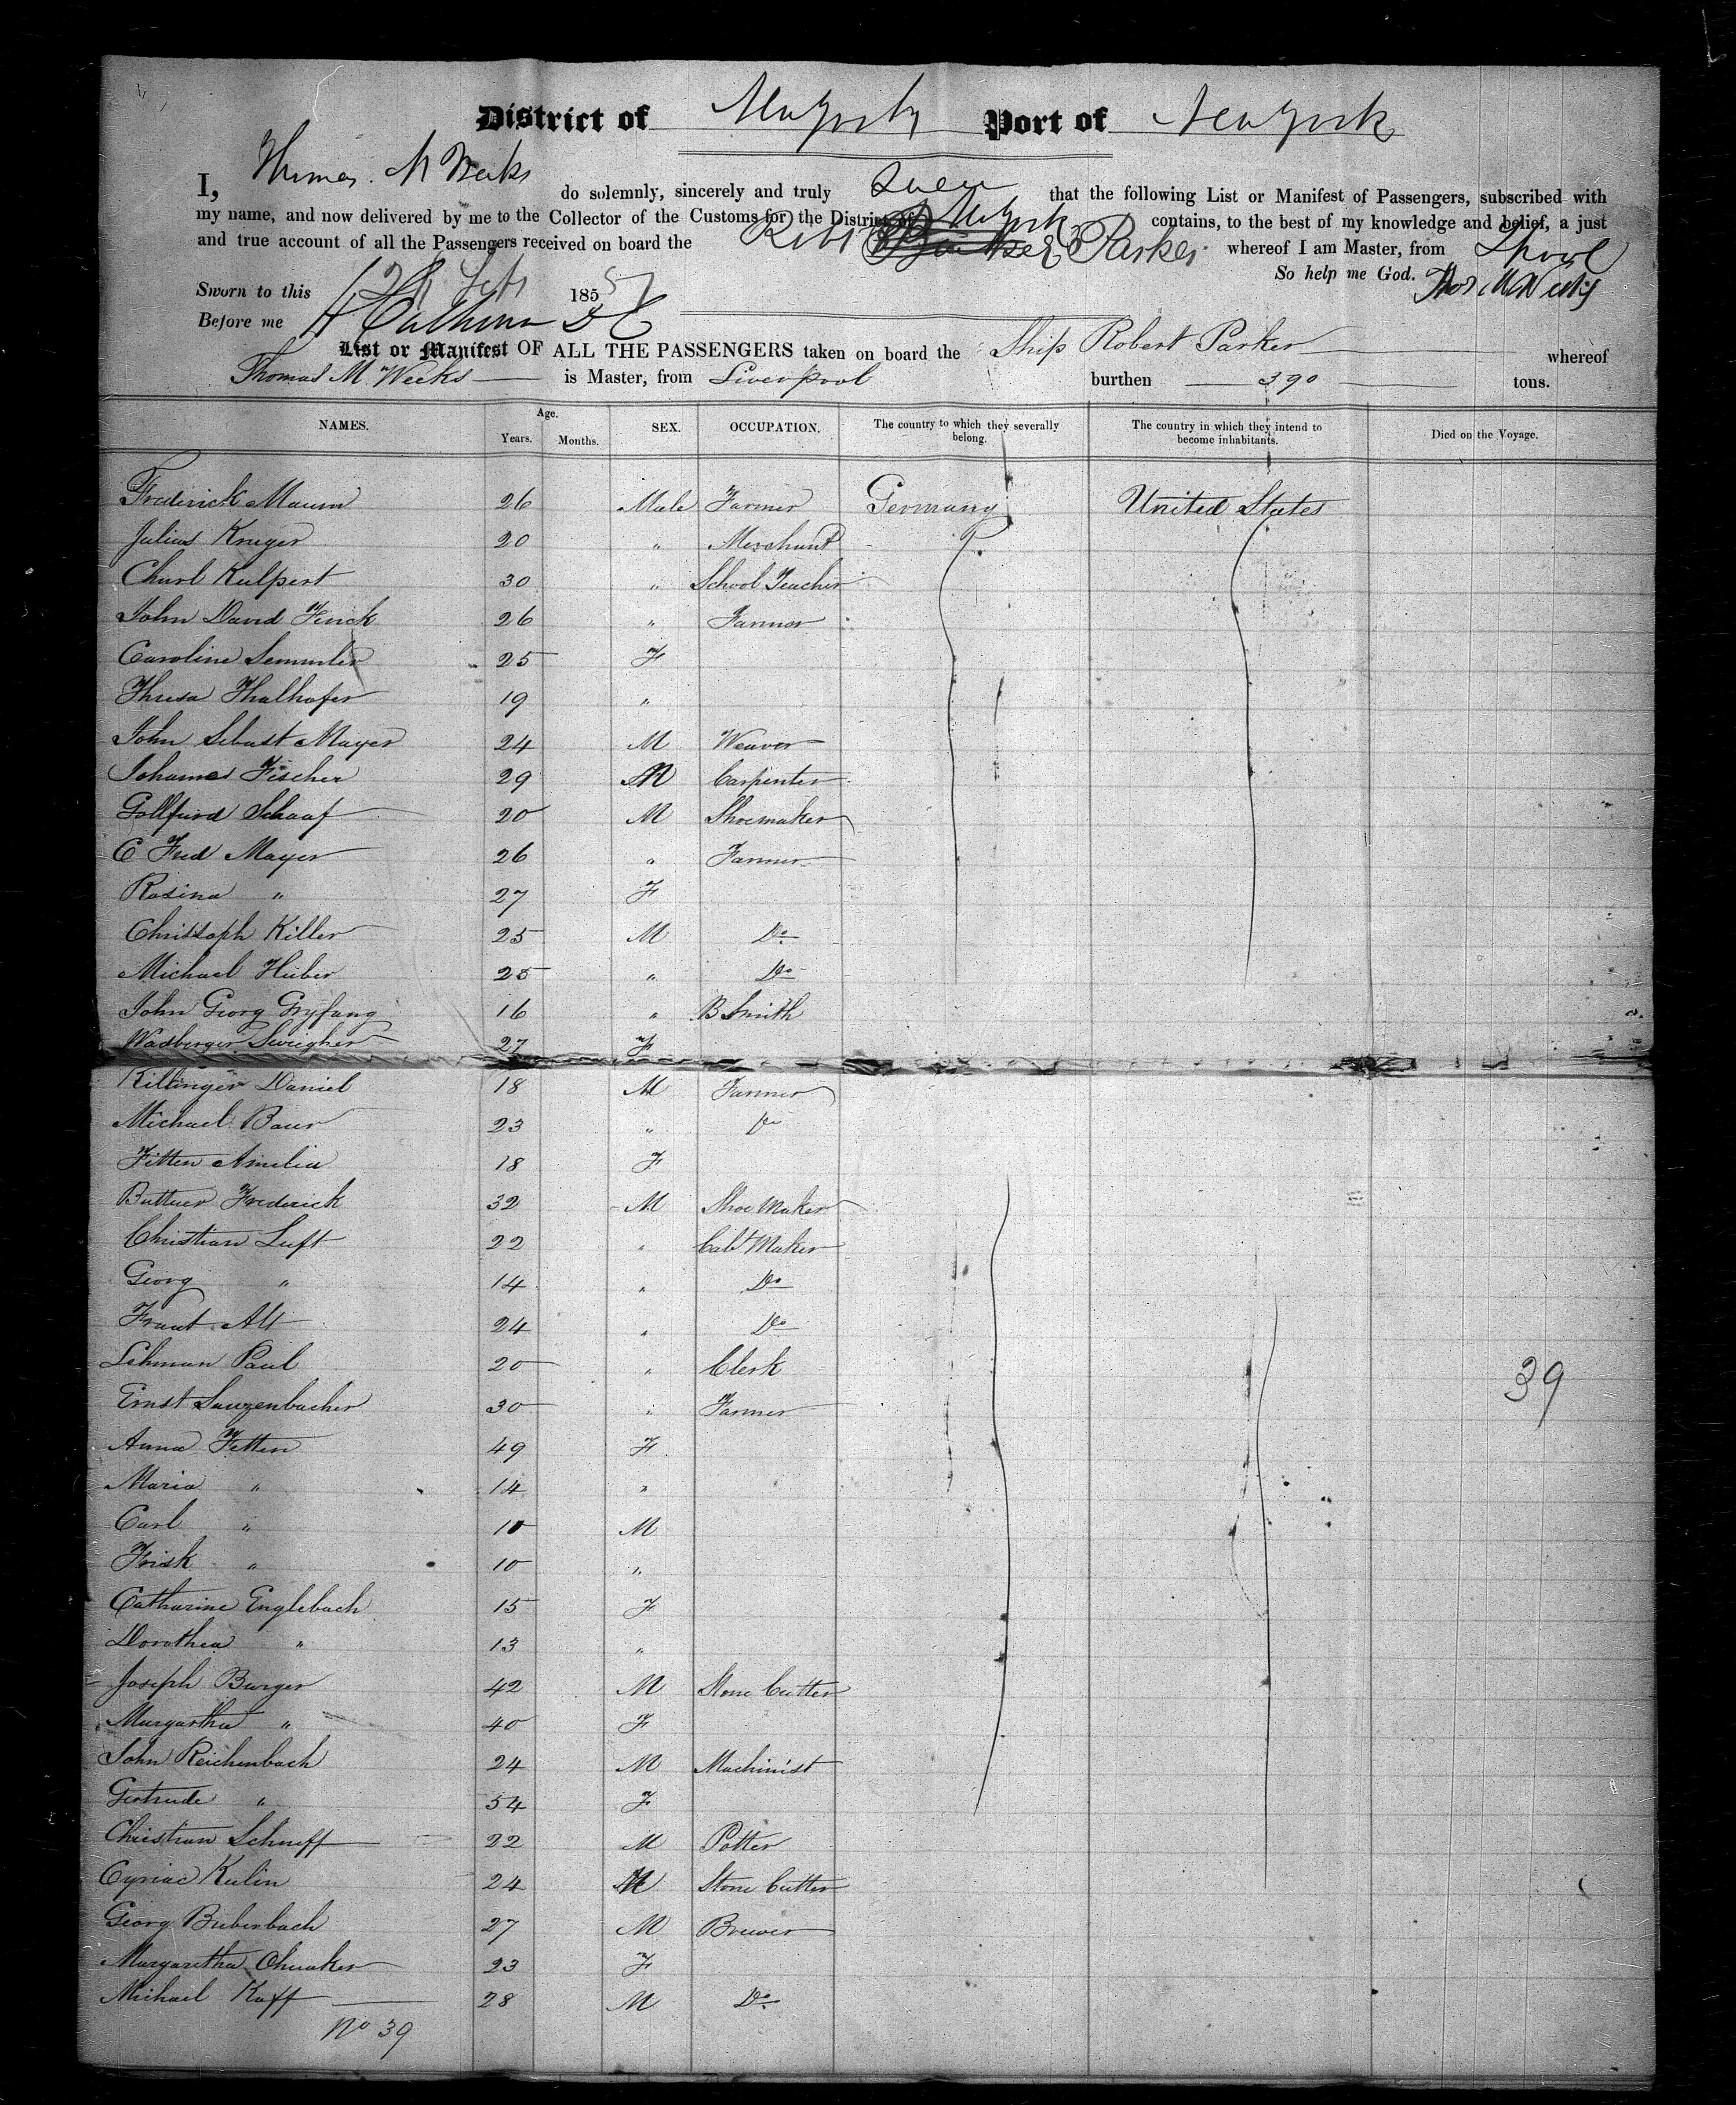 District of New York Port of New York
I, Thomas M Weeks do solemnly, sincerely and truly Swear that the following List or Manifest of Passengers, subscribed with
my name, and now delivered by me to the Collector of the Customs for the District of New York contains, to the best of my knowledge and belief, a just
and true account of all the Passengers received on board the Robt Parker whereof I am Master, from Lpool
So help me God. Thos M Weeks
Sworn to this 1857
Before me Calhoun D C
List or Manifest OF ALL THE PASSENGERS taken on board the Ship Robert Parker whereof
Thomas M Weeks is Master, from Liverpool burthen 390 tons.
NAMES. Age. Years. Months. SEX. OCCUPATION. The country to which they severally belong. The country in which they intend to become inhabitants. Died on the Voyage.
Frederick Maurer 26 Male Farmer Germany United States
Julius Kruger 20 " Merchant
Charl Kulpert 30 " School Teacher
John David Finck 26 " Farmer
Caroline Semmler 25 F
Thresa Thalhofer 19 "
John Sebast Mayer 24 M Weaver
Johannes Fischer 29 M Carpenter
Gottfurd Schaaf 20 M Shoemaker
C Fred Mayer 26 " Farmer
Rosina " 27 F
Christoph Killer 25 M Do
Michael Huber 25 " Do
John Georg Gryfang 16 " B Smith
Wasberger Sweigher 27 F
Killinger Daniel 18 M Farmer
Michael Baur 23 " Do
Fitten Amelia 18 F
Buttner Frederick 32 M Shoe Maker
Christian Luft 22 " Cabt Maker
Georg " 14 " Do
Frant Alt 24 " Do
Lehman Paul 20 " Clerk
Ernst Sauzenbacher 30 " Farmer
39
Anna Fetten 49 F
Maria " 14 "
Carl " 10 M
Frisk " 10 "
Catharine Englebach 15 F
Dorothea " 13 "
Joseph Burger 42 M Stone Cutter
Margartha " 40 F
John Reichenbach 24 M Machinist
Gertrude " 54 F
Christian Schneff 22 M Potter
Cyriac Kulin 24 M Stone Cutter
Georg Biberbach 27 M Brewer
Margaretha Ohnaker 23 F
Michael Kaff 28 M Do
No 39